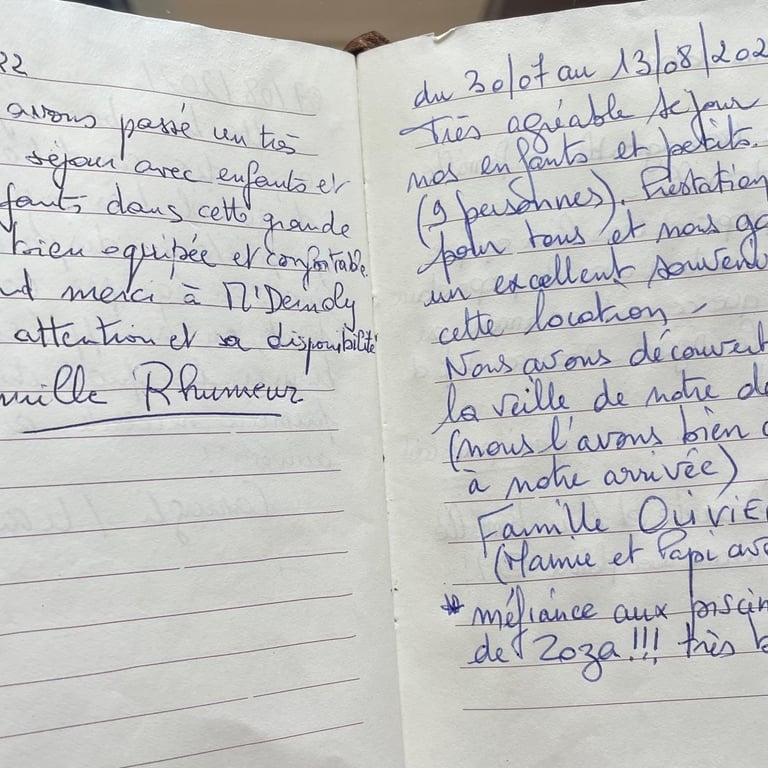 22
avons passé un très
séjour avec enfants et
fants dans cette grande
bien equipée et confortable.
nd merci à M'Demoly
attention et sa disponibilité
mille Rhumeur
du 30/07 au 13/08/202
Très agréable séjour
nos enfants et petits.
(9 personnes). Prestation
pour tous et nous ga
un excellent souveni
cette location
Nous avons découvert
la veille de notre dé
(nous l'avons bien
à notre arrivée)
Famille
(Mamie et Papi av
* méfiance aux piscin
de Zoza!!! très b